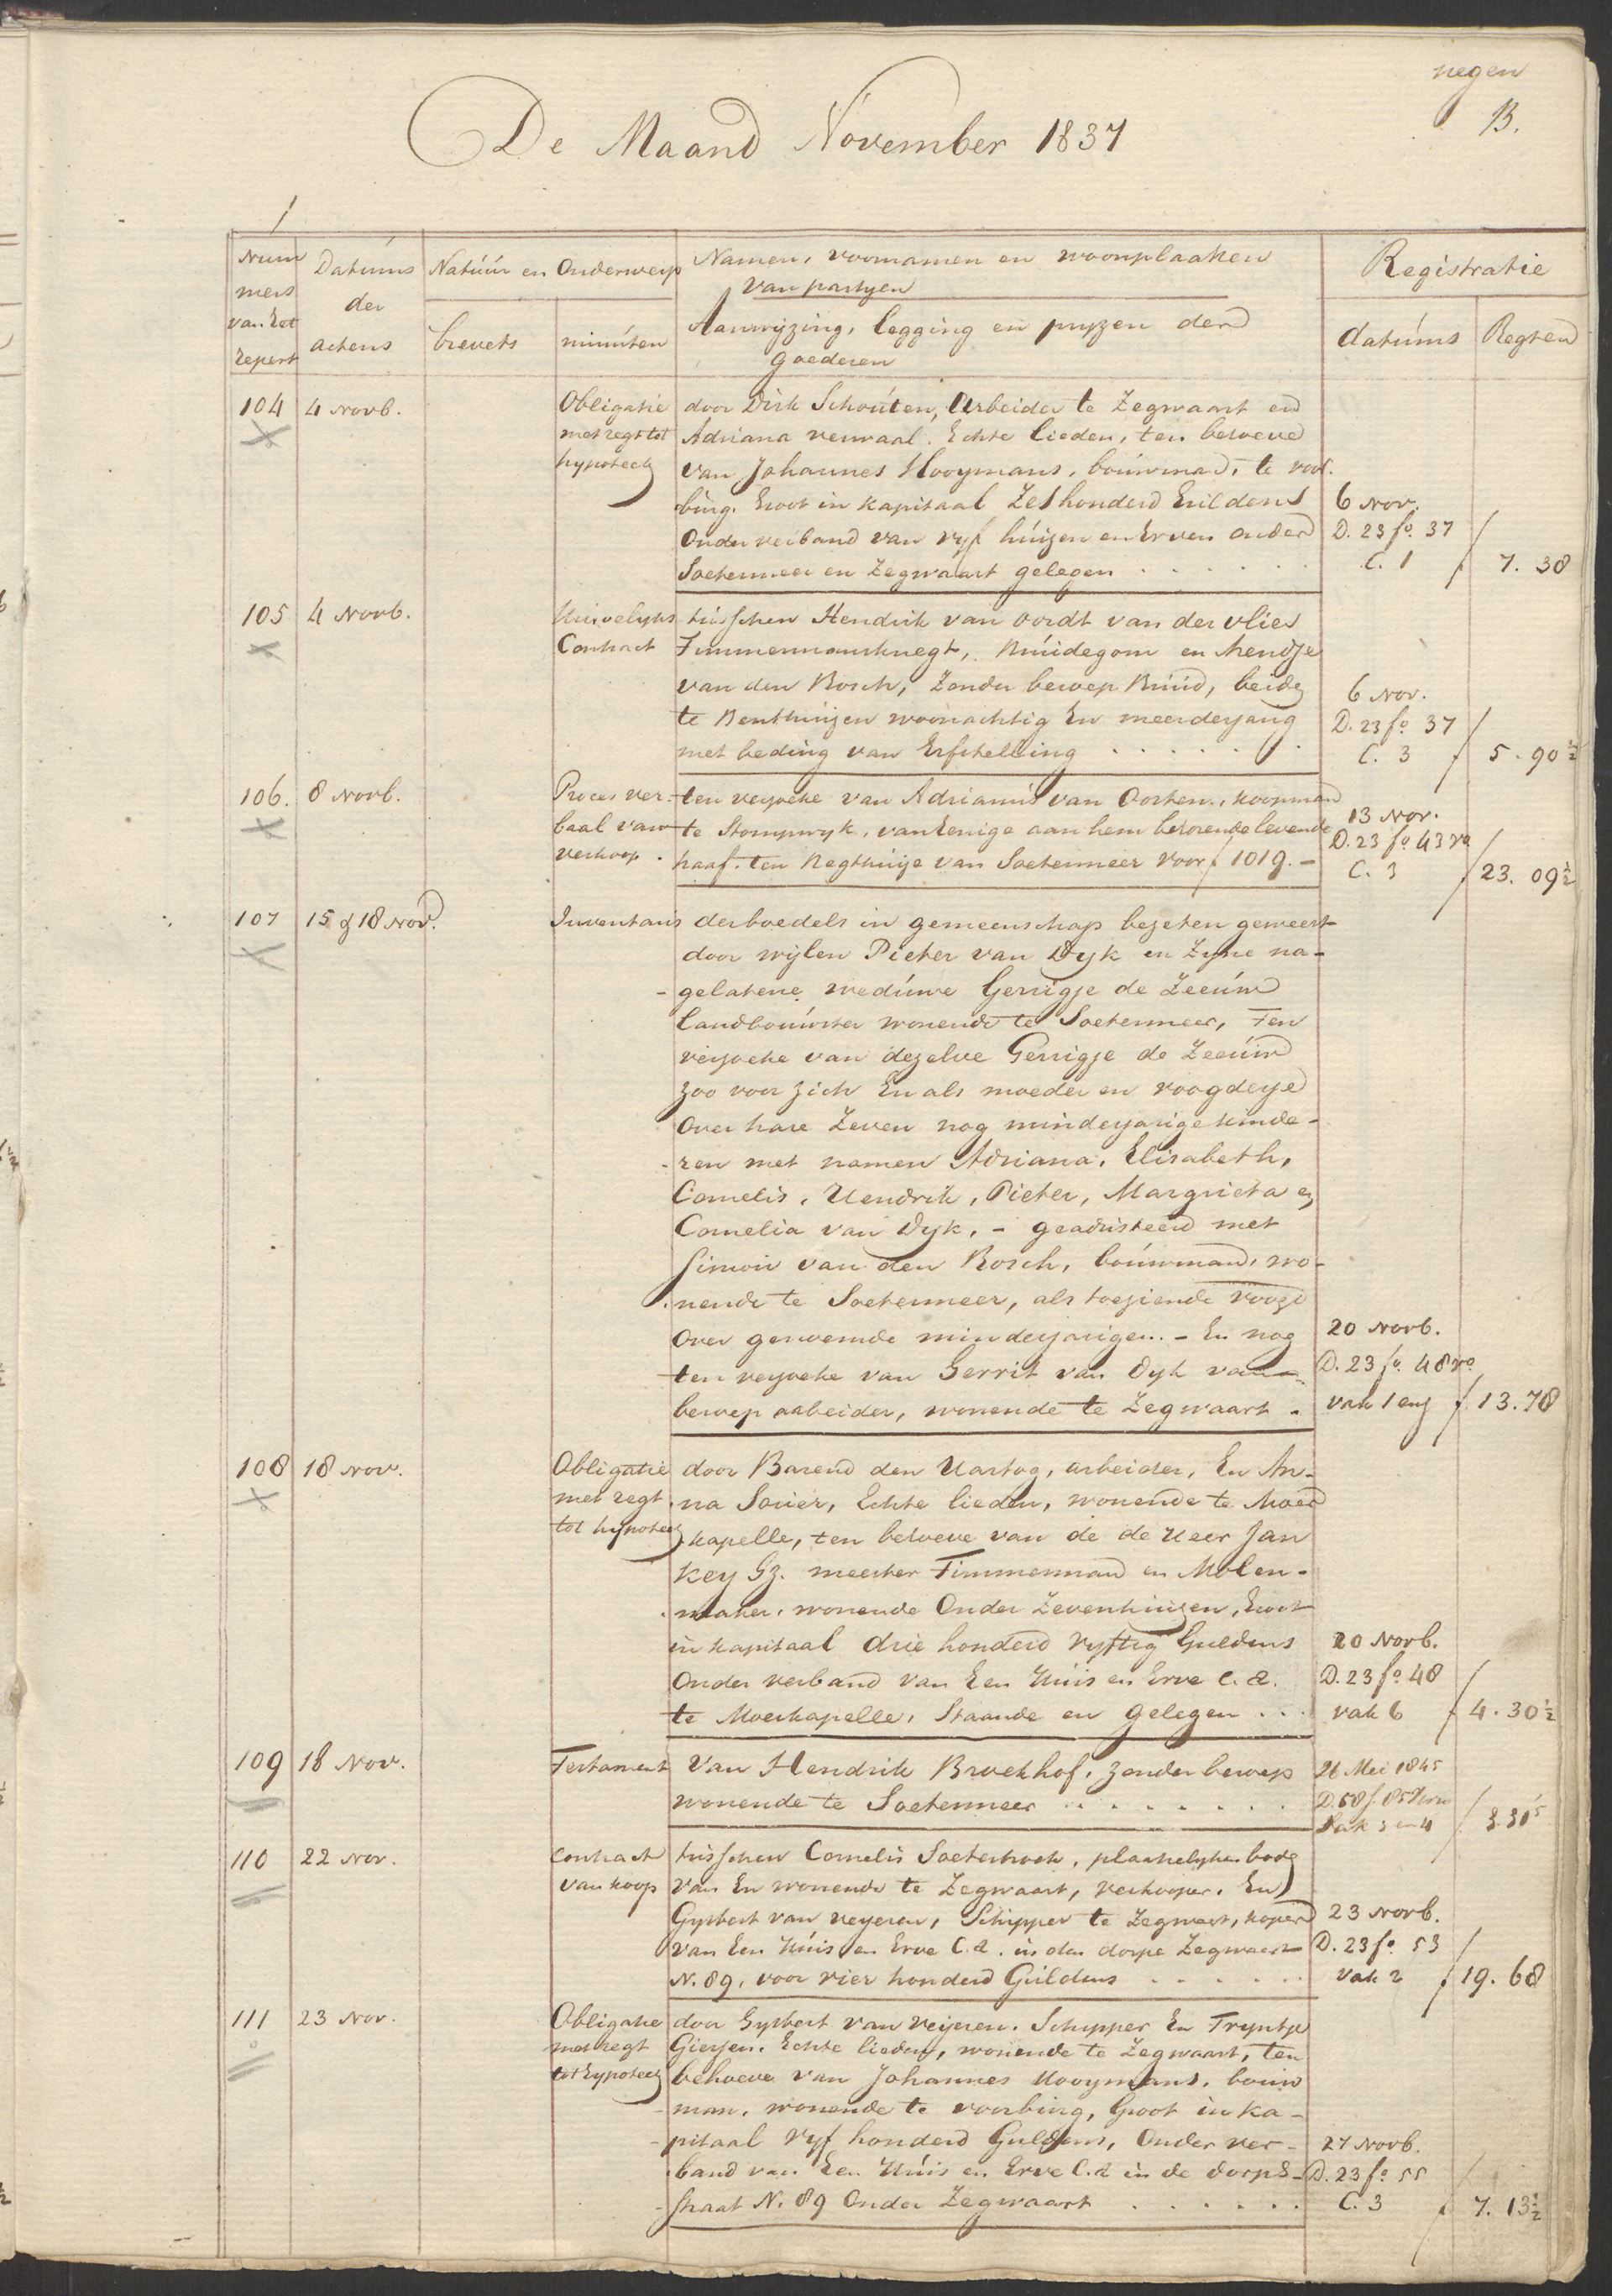 negen
B.
De Maand November 1837
Num
mers
van tot
repert
Datums
der
actens
Natuur en Onderwerp
brevets
minuten
Namen, voornamen en woonplaatsen
van partyen
Aanwyzing, legging en pryzen der
goederen
Registratie
datums
Regten
104
4 Novb.
Obligatie
met regt tot
hypoteek
door Dirk Schouten, Arbeider te Zegwaart en
Adriana verwaal. Echte lieden, ten behoeve
van Johannes Hooymans, bouwman, te voor
burg. Groot in kapitaal Zeshonderd Guldens
Onder verband van vyf huizen en Erven onder
Soetermeer en Zegwaart gelegen . . . . . .
6 Nov.
D. 23 fo. 37
C. 1
f 7. 38
105
4 Novb.
Huwelyks
Contract
tusschen Hendrik van oordt van der vlies
Timmermansknegt, Bruidegom en
van den Bosch, Zonder beroep Bruid, beide
te Benthuizen woonachtig En meerderjarig
met beding van Erfstelling . . . . . .
6 Nov.
D. 23 fo. 37
C. 3
f 5. 90 ½
106.
8 Novb.
Proces ver-
baal van
verkoop .
ten verzoeke van Adrianus van Oosten, koopman
te Stompwyk, van Eenige aan hem behorende levende
haaf. ten Regthuize van Soetermeer voor f 1019. -
13 Nov.
D. 23 fo. 43 vo
C. 3
f 23. 09 ½
107
15 & 18 Nov.
Inventaris
der boedels in gemeenschap bezeten geweest
door wijlen Pieter van Dyk en Zyne na-
- gelatene weduwe Gerrigje de Zeeuw
Landbouwster wonende te Soetermeer, Ten
verzoeke van dezelve Gerrigje de Zeeuw
zoo voor zich En als moeder en voogdesse
Over hare Zeven nog minderjarige kinde-
- ren met namen Adriana, Elisabeth,
Cornelis, Hendrik, Pieter, Margrieta en
Cornelia van Dyk, - geadsisteerd met
Simon van den Bosch, bouwman, wo-
. nende te Soetermeer, als toeziende voogd
Over genoemde minderjarigen. - En nog
ten verzoeke van Gerrit van Dyk van
beroep arbeider, wonende te Zegwaart .
20 Novb.
D. 23 fo. 48 vo
vak 1 enz
f 13. 78
108
18 Nov.
Obligatie
met regt
tot hypoteek
door Barend den Hartog, arbeider, En An-
na Sovier, Echte lieden, wonende te Moer
kapelle, ten behoeve van de de Heer Jan
Key Gz. meester Timmerman en Molen-
. maker, wonende Onder Zevenhuizen, Groot
in kapitaal drie honderd vyftig Guldens
Onder verband van Een Huis en Erve C. a.
te Moerkapelle, Staande en gelegen . . .
20 Novb.
D. 23 fo. 48
vak 6
f 4. 30 ½
109
18 Nov.
Testament
van Hendrik Broekhof, zonder beroep
wonende te Soetermeer . . . . . . . .
26 Mei 1845
D. 58 f. 85
Vak 3 en 4
f 3.30 5
110
22 Nov.
Contract
van koop
tusschen Cornelis Soeterhoek, plaatselyke bode
van En wonende te Zegwaart, verkooper. En
Gysbert van veyeren, Schipper te Zegwaart, koper
van Een Huis en Erve C. a. in den dorpe Zegwaart
N. 89, voor vier honderd Guldens . . . . . .
23 Novb.
D. 23 fo. 53
vak 2
f 19. 68
111
23 Nov.
Obligatie
met regt
tot hypoteek
door Gysbert van veyeren, Schipper En Tryntje
Giersen. Echte lieden, wonende te Zegwaart, ten
behoeve van Johannes Hooymans, bouw
- man, wonende te voorburg, Groot in ka-
- pitaal vyf honderd Guldens, Onder ver-
. band van Een Huis en Erve C. a in de dorps-
- straat N. 89 Onder Zegwaart . . . . . .
27 Novb.
D. 23 fo. 55
C. 3
f 7. 13 ½